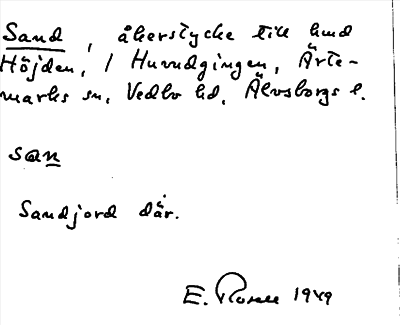 Sand, åkerstycke till hmd
Höjden, 1 Huvudgingen, Ärte-
marks sn, Vedbo hd, Älvsborgs l.
san
Sandjord där.
E. Rosell 1949